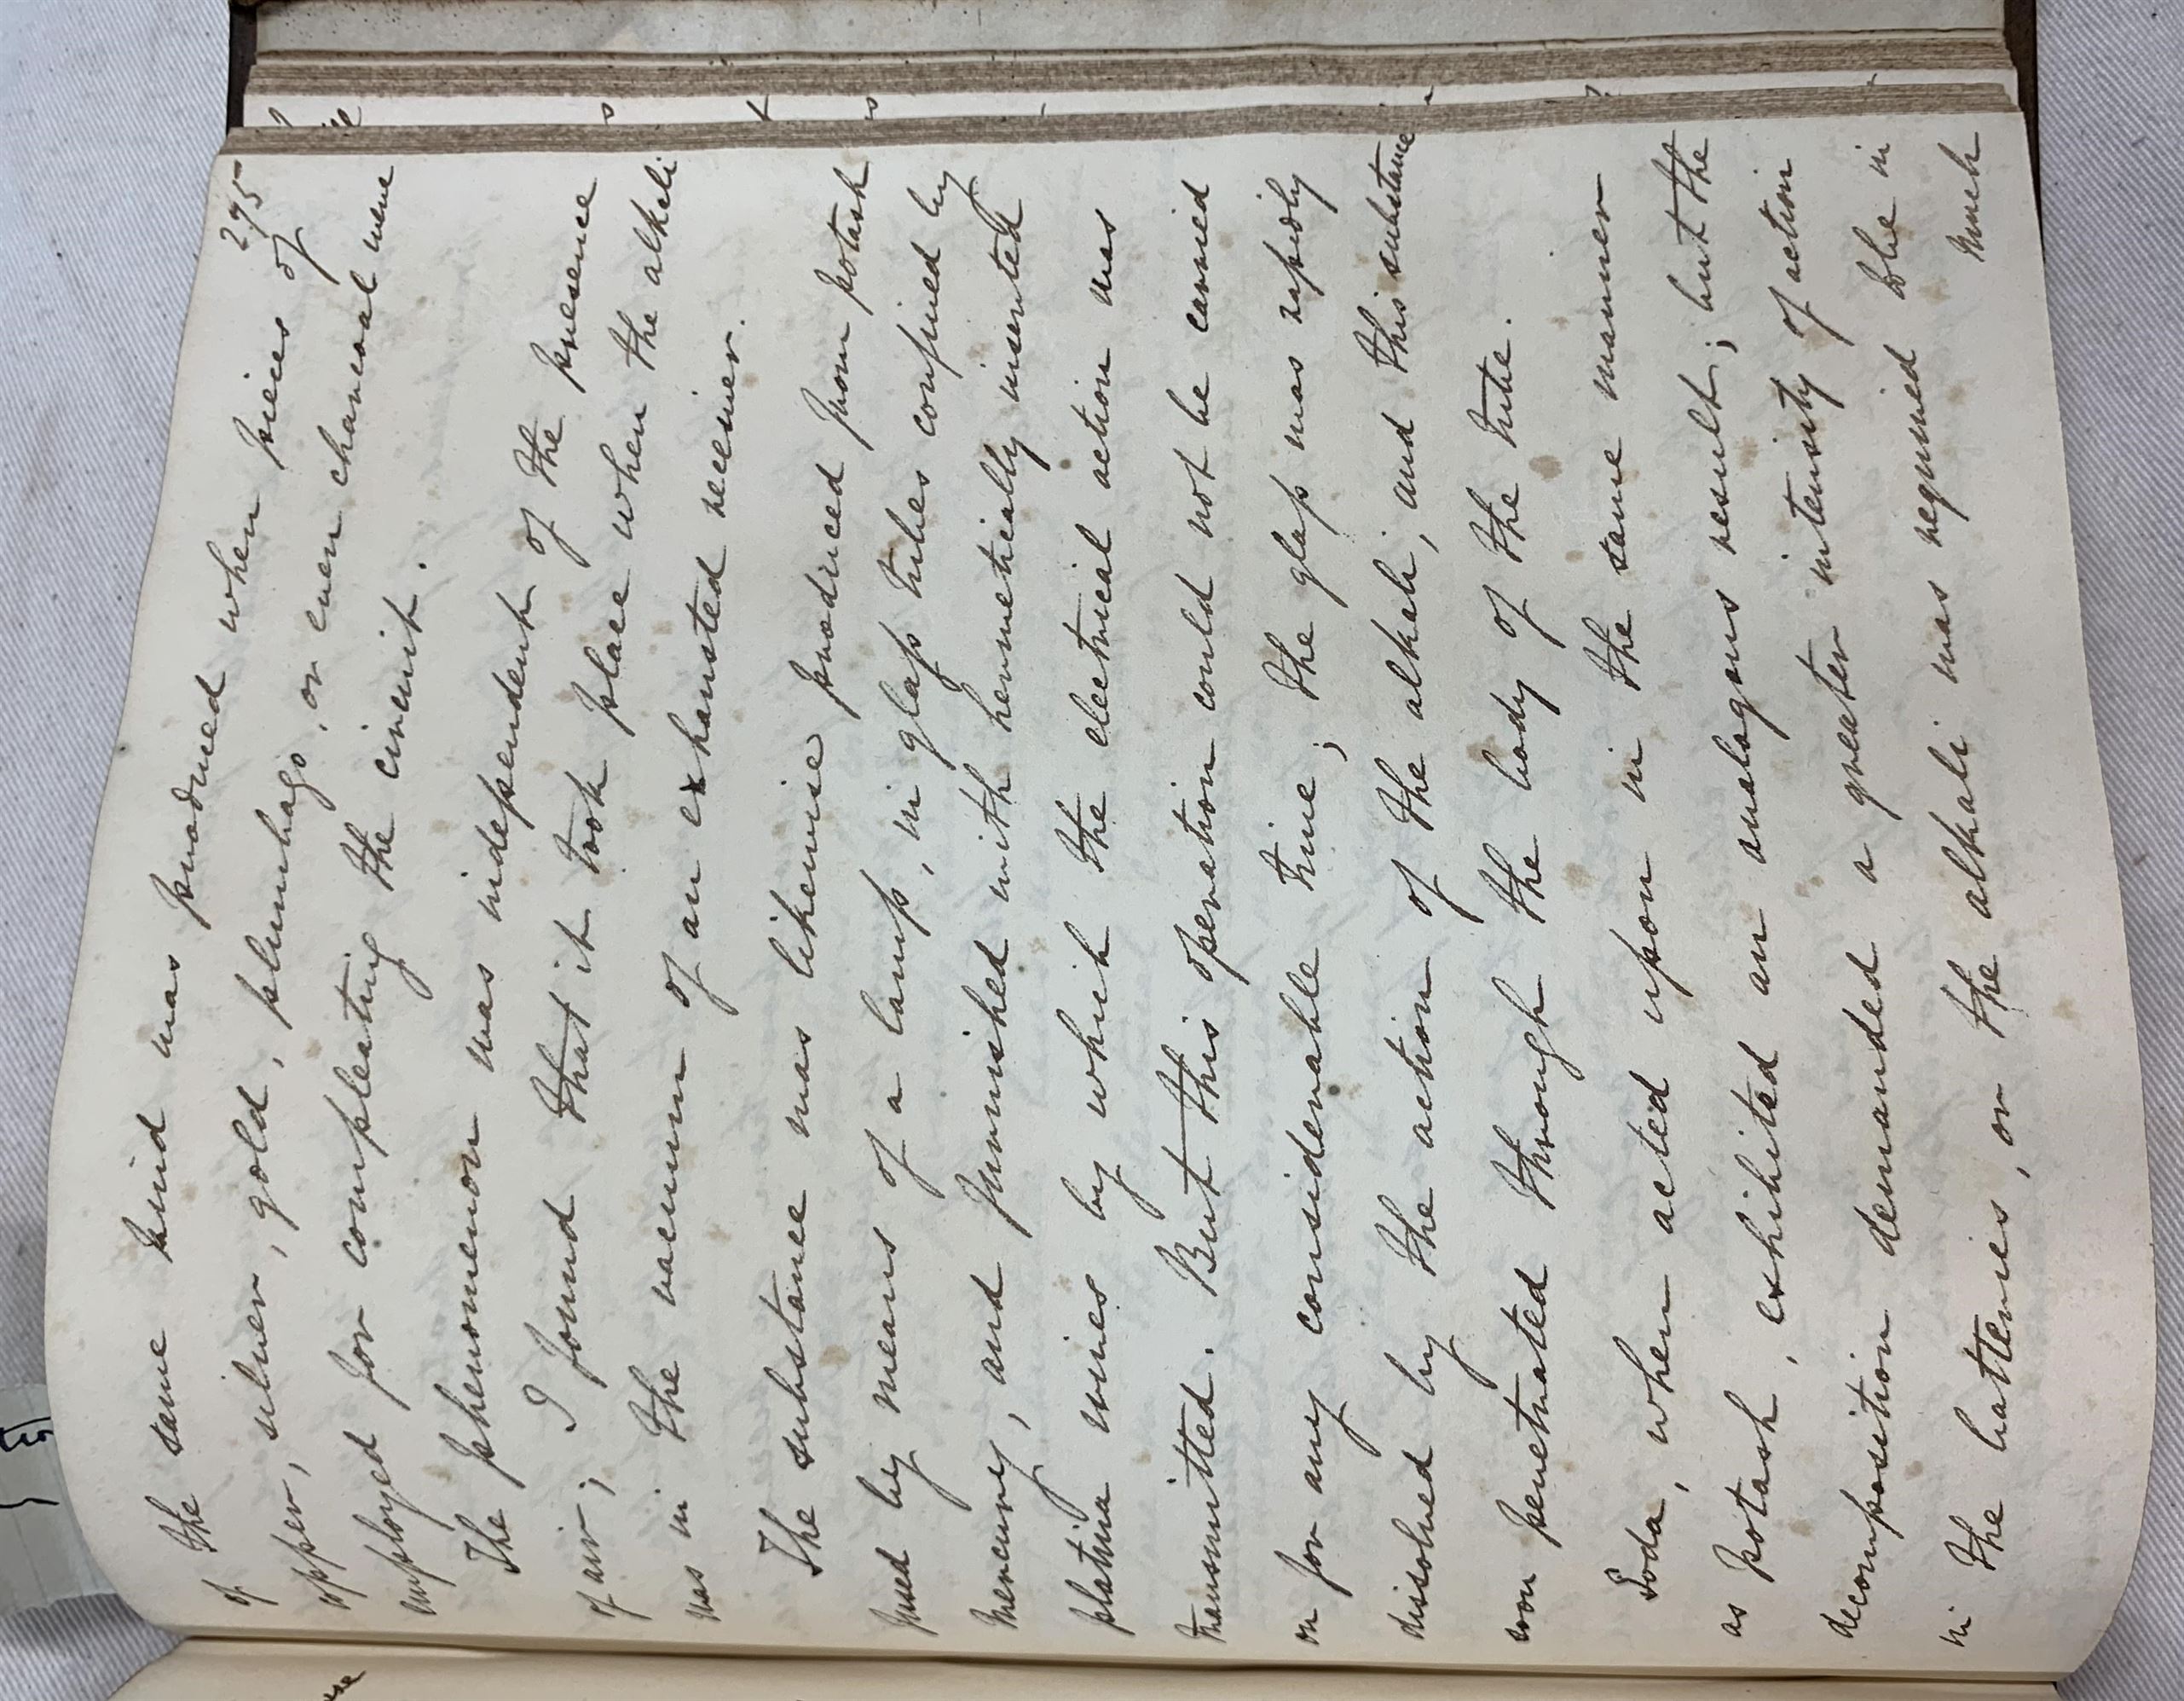 295
of the same kind was produced when pieces of
copper, silver, gold, plumbago, or even charcoal were
employed for compleating the circuit.
The phenomenon was independent of the presence
of air; I found that it took place when the alkali
was in the vacuum of an exhausted receiver.
The substance was likewise produced from potash
fused by means of a lamp, in glass tubes confined by
mercury, and furnished with hermetically inserted
platina wires by which the electrical action was
transmitted. But this operation could not be carried
on for any considerable time; the glass was rapidly
dissolved by the action of the alkali, and this substance
soon penetrated through the body of the tube.
Soda, when acted upon in the same manner
as potash, exhibited an analogous result; but the
decomposition demanded a greater intensity of action
in the batteries, or the alkali was required to be in
much